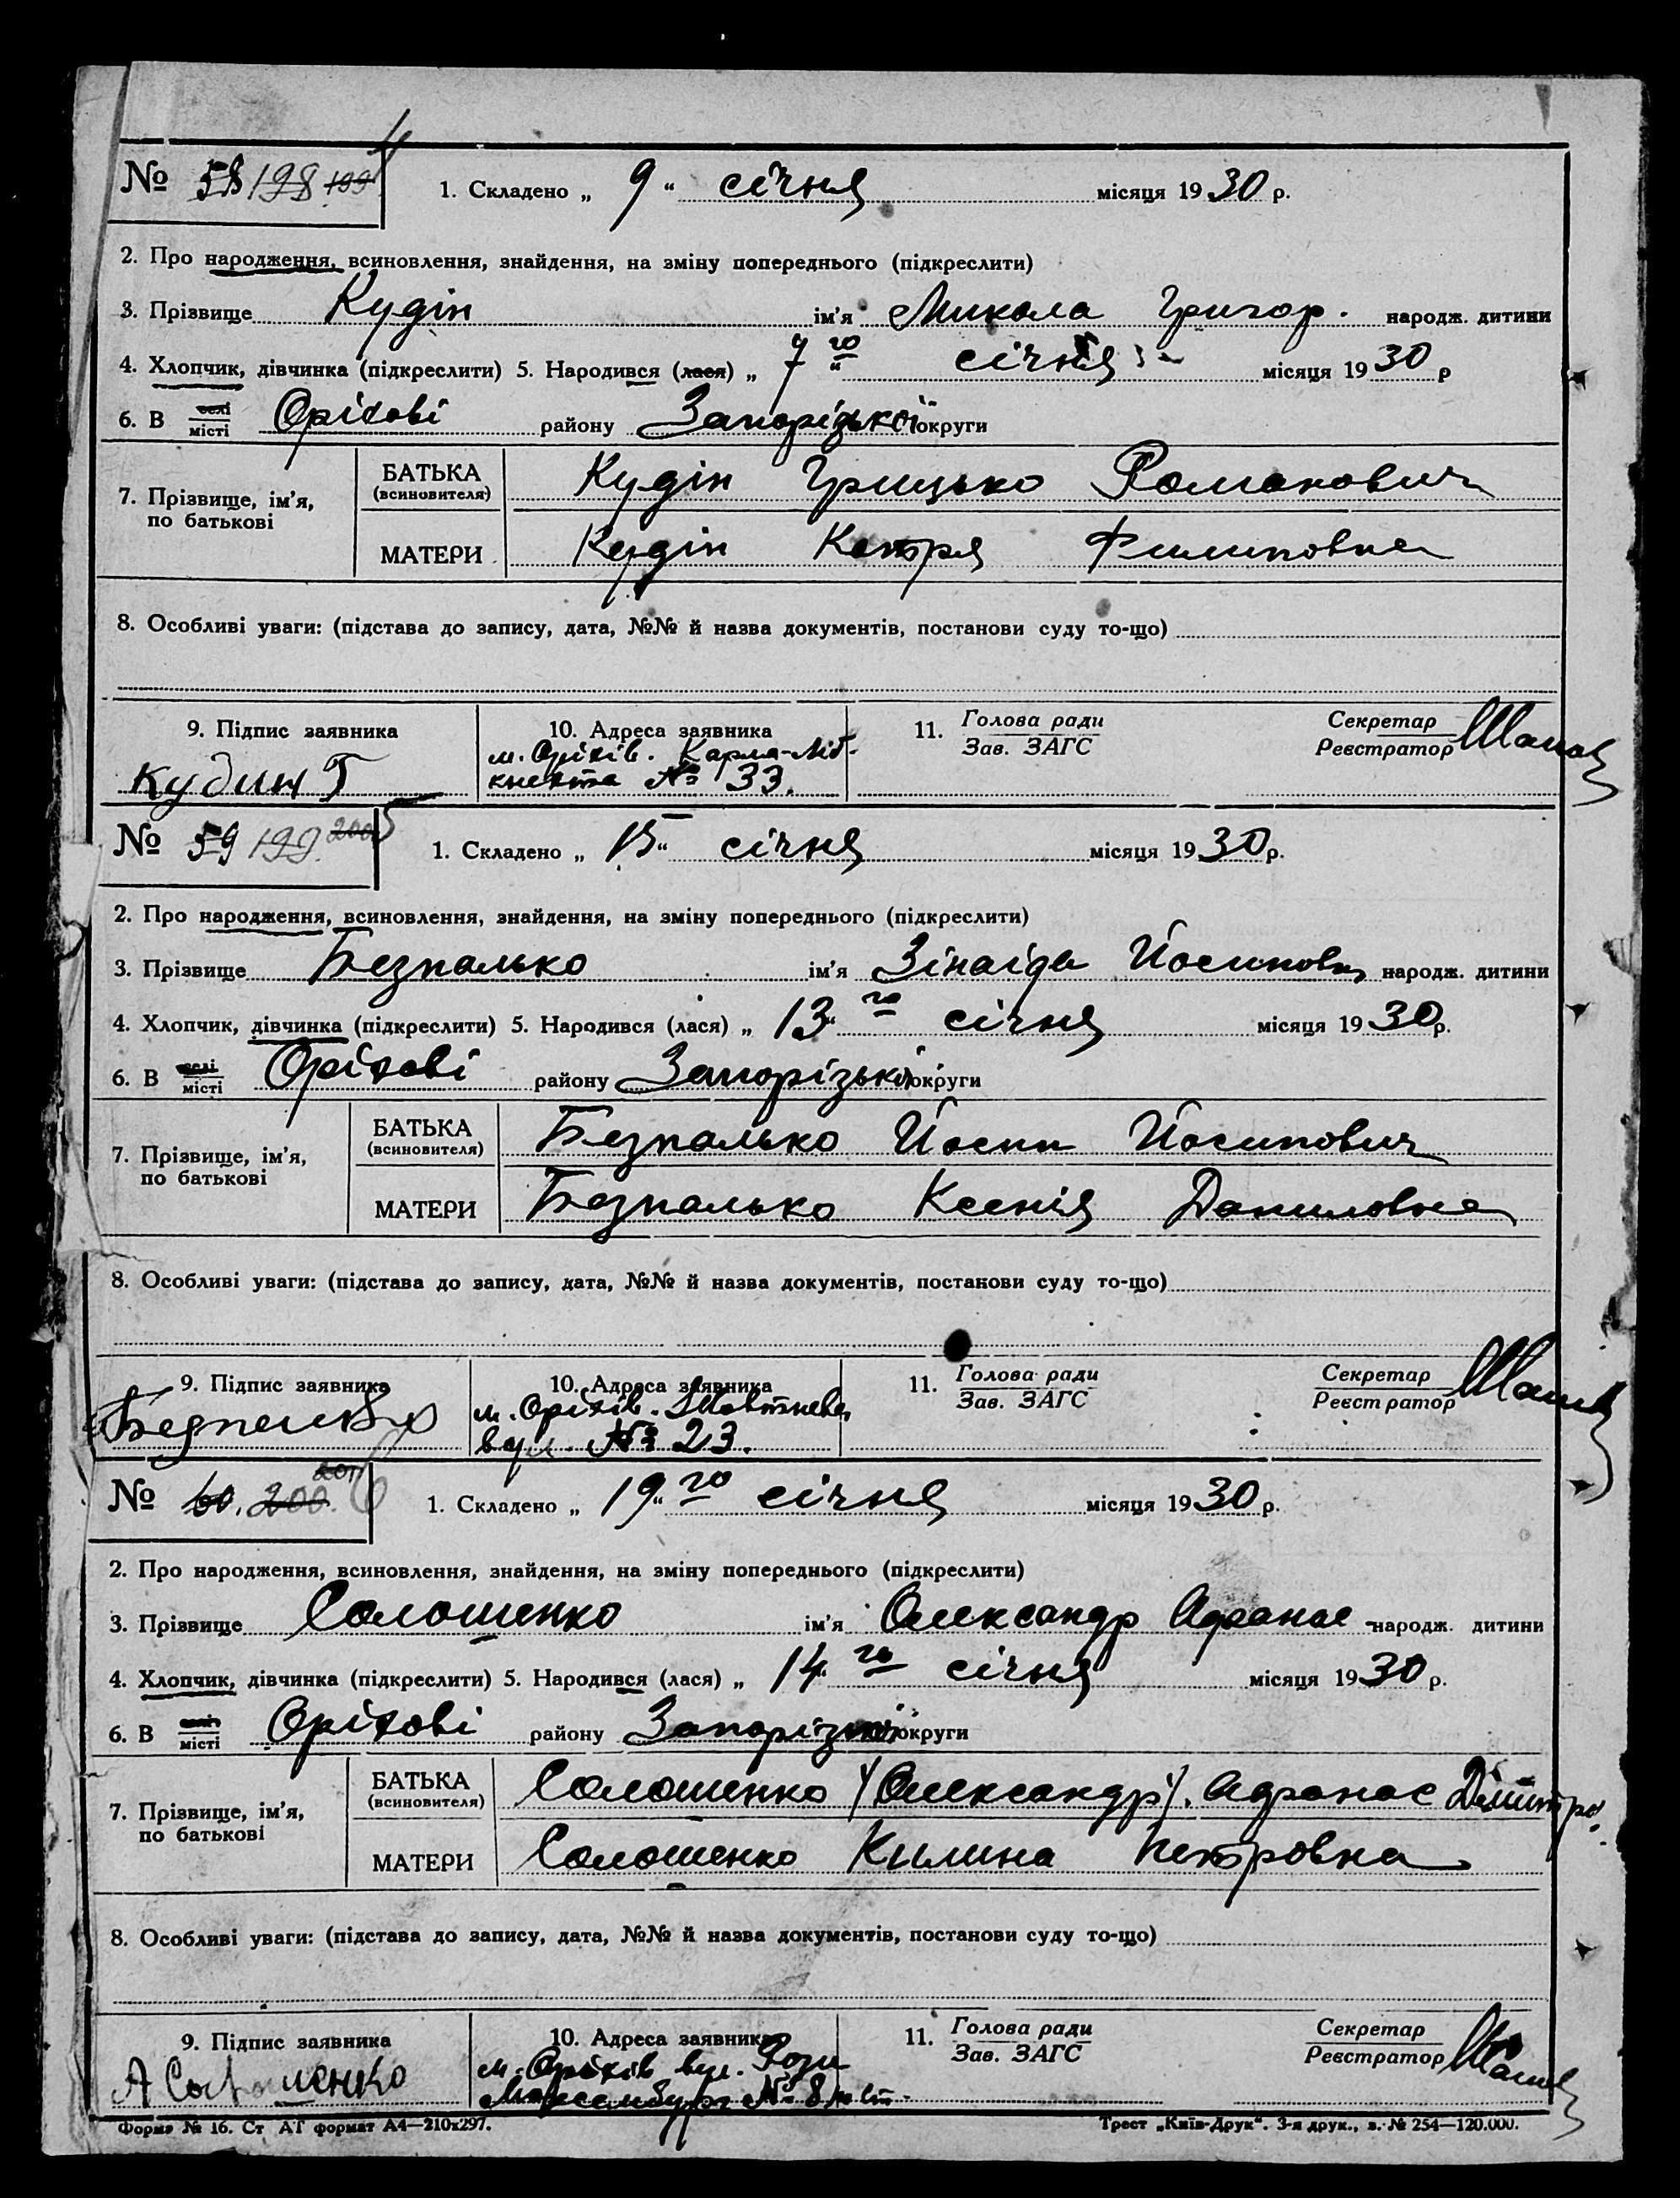 № 58 198 199 4 1. Складено „ 9 “ січня місяця 1930 р.
2. Про народження, всиновлення, знайдення, на зміну попереднього (підкреслити)
3. Прізвище Кудін ім’я Микола Григор. народж. дитини
4. Хлопчик, дівчинка (підкреслити) 5. Народився (лася) „ 7 го “ січня місяця 1930 р
6. В селі місті Оріхові району Запорізької округи
7. Прізвище, ім’я, по батькові БАТЬКА (всиновителя) Кудін Грицько Романович
МАТЕРИ Кудін Катря Филиповна
8. Особливі уваги: (підстава до запису, дата, №№ й назва документів, постанови суду то-що)
9. Підпис заявника 10. Адреса заявника 11. Голова ради Секретар
Зав. ЗАГС Реєстратор
Кудин Г м. Оріхів. Карла-Ліб-
кнехта № 33.
№ 59 199 200 5 1. Складено „ 15 “ січня місяця 1930 р.
2. Про народження, всиновлення, знайдення, на зміну попереднього (підкреслити)
3. Прізвище Безпалько ім’я Зінаіда Йосиповн народж. дитини
4. Хлопчик, дівчинка (підкреслити) 5. Народився (лася) „ 13 го “ січня місяця 1930 р.
6. В селі місті Оріхові району Запорізької округи
7. Прізвище, ім’я, по батькові БАТЬКА (всиновителя) Безпалько Йосип Йосипович
МАТЕРИ Безпалько Ксенія Даниловна
8. Особливі уваги: (підстава до запису, дата, №№ й назва документів, постанови суду то-що)
9. Підпис заявника 10. Адреса заявника 11. Голова ради Секретар
Зав. ЗАГС Реєстратор
м. Оріхів. Жовтнева
вул. № 23.
№ 60. 200. 201 6 1. Складено „ 19 “ го січня місяця 1930 р.
2. Про народження, всиновлення, знайдення, на зміну попереднього (підкреслити)
3. Прізвище Солошенко ім’я Олександр Адранас народж. дитини
4. Хлопчик, дівчинка (підкреслити) 5. Народився (лася) „ 14 го “ січня місяця 1930 р.
6. В селі місті Оріхові району Запорізької округи
7. Прізвище, ім’я, по батькові БАТЬКА (всиновителя) Солошенко /Олександр/. Адранас Дмитро.
МАТЕРИ Солошенко Килина Петровна
8. Особливі уваги: (підстава до запису, дата, №№ й назва документів, постанови суду то-що)
9. Підпис заявника 10. Адреса заявника 11. Голова ради Секретар
Зав. ЗАГС Реєстратор
А Солошенко м. Оріхів вул. Рози
Люксембург № 8
Форма № 16. Ст АТ формат А4—210х297. Трест „Київ-Друк“. 3-я друк., з. № 254—120.000.